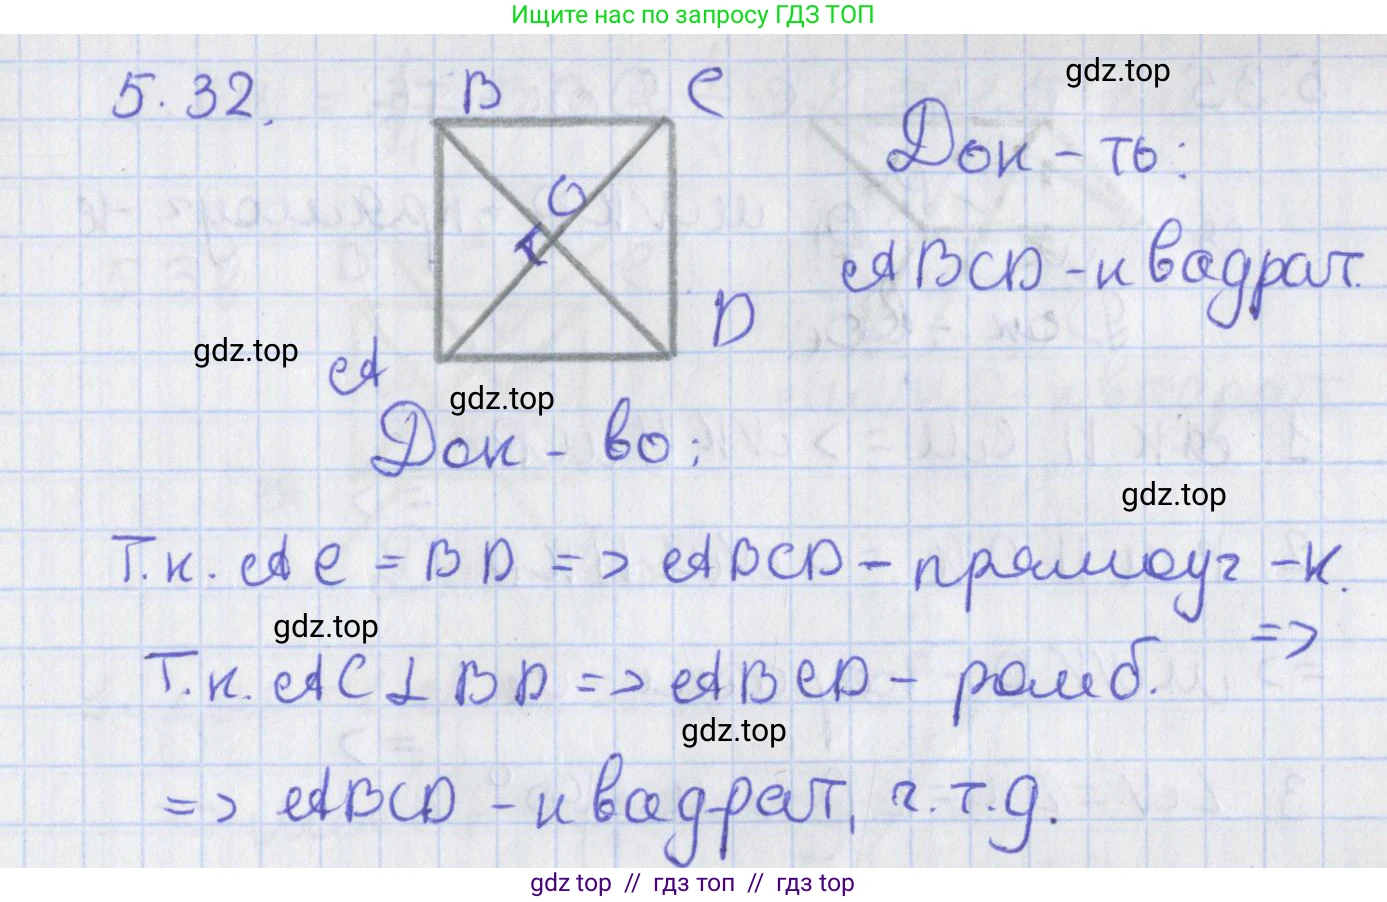 Ищите нас по запросу ГДЗ ТОП
5.32.
B
C
gdz.top
Док-ть:
O
ABCD - квадрат.
D
gdz.top
A
gdz.top
Док-во:
gdz.top
Т.к. AC = BD => ABCD - прямоуг-к.
gdz.top
=>
Т.к. AC ⊥ BD => ABCD - ромб.
gdz.top
=> ABCD - квадрат, ч.т.д.
gdz top // гдз топ // гдз top